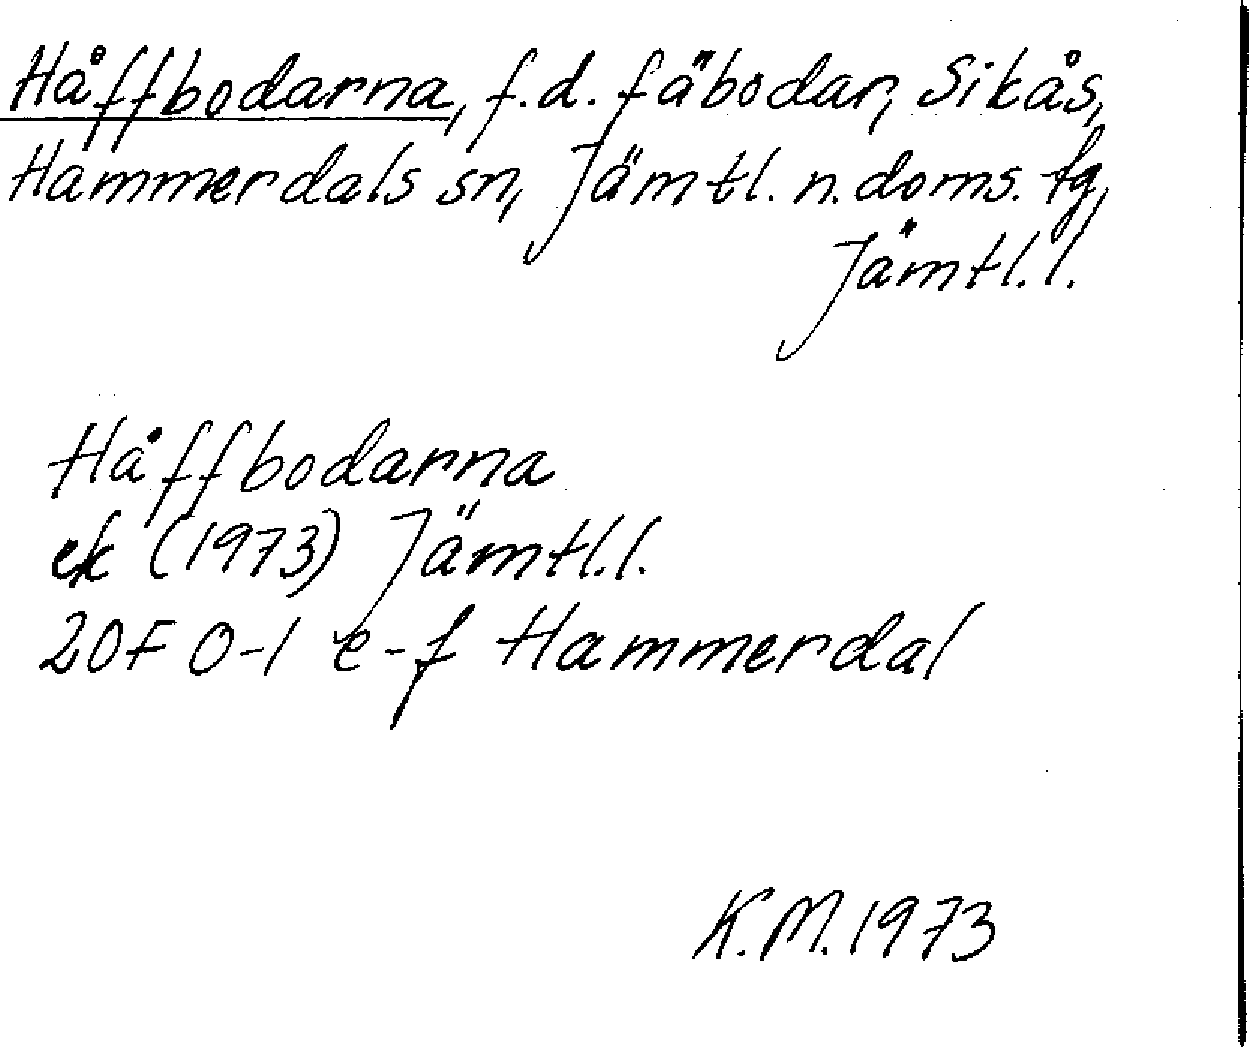 Håffbodarna, f.d. fäbodar, Sikås,
Hammerdals sn, Jämtl. n. doms. fg,
Jämtl. l.
Håffbodarna
ek (1973) Jämtl. l.
20F 0-1 e-f Hammerdal
K.M. 1973